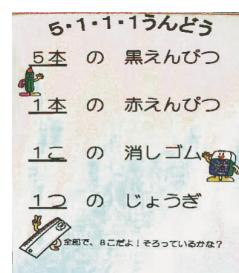 5・1・1・1うんどう
5本 の 黒えんぴつ
1本 の 赤えんぴつ
1こ の 消しゴム
1つ の じょうぎ
全部で、8こだよ！そろっているかな？